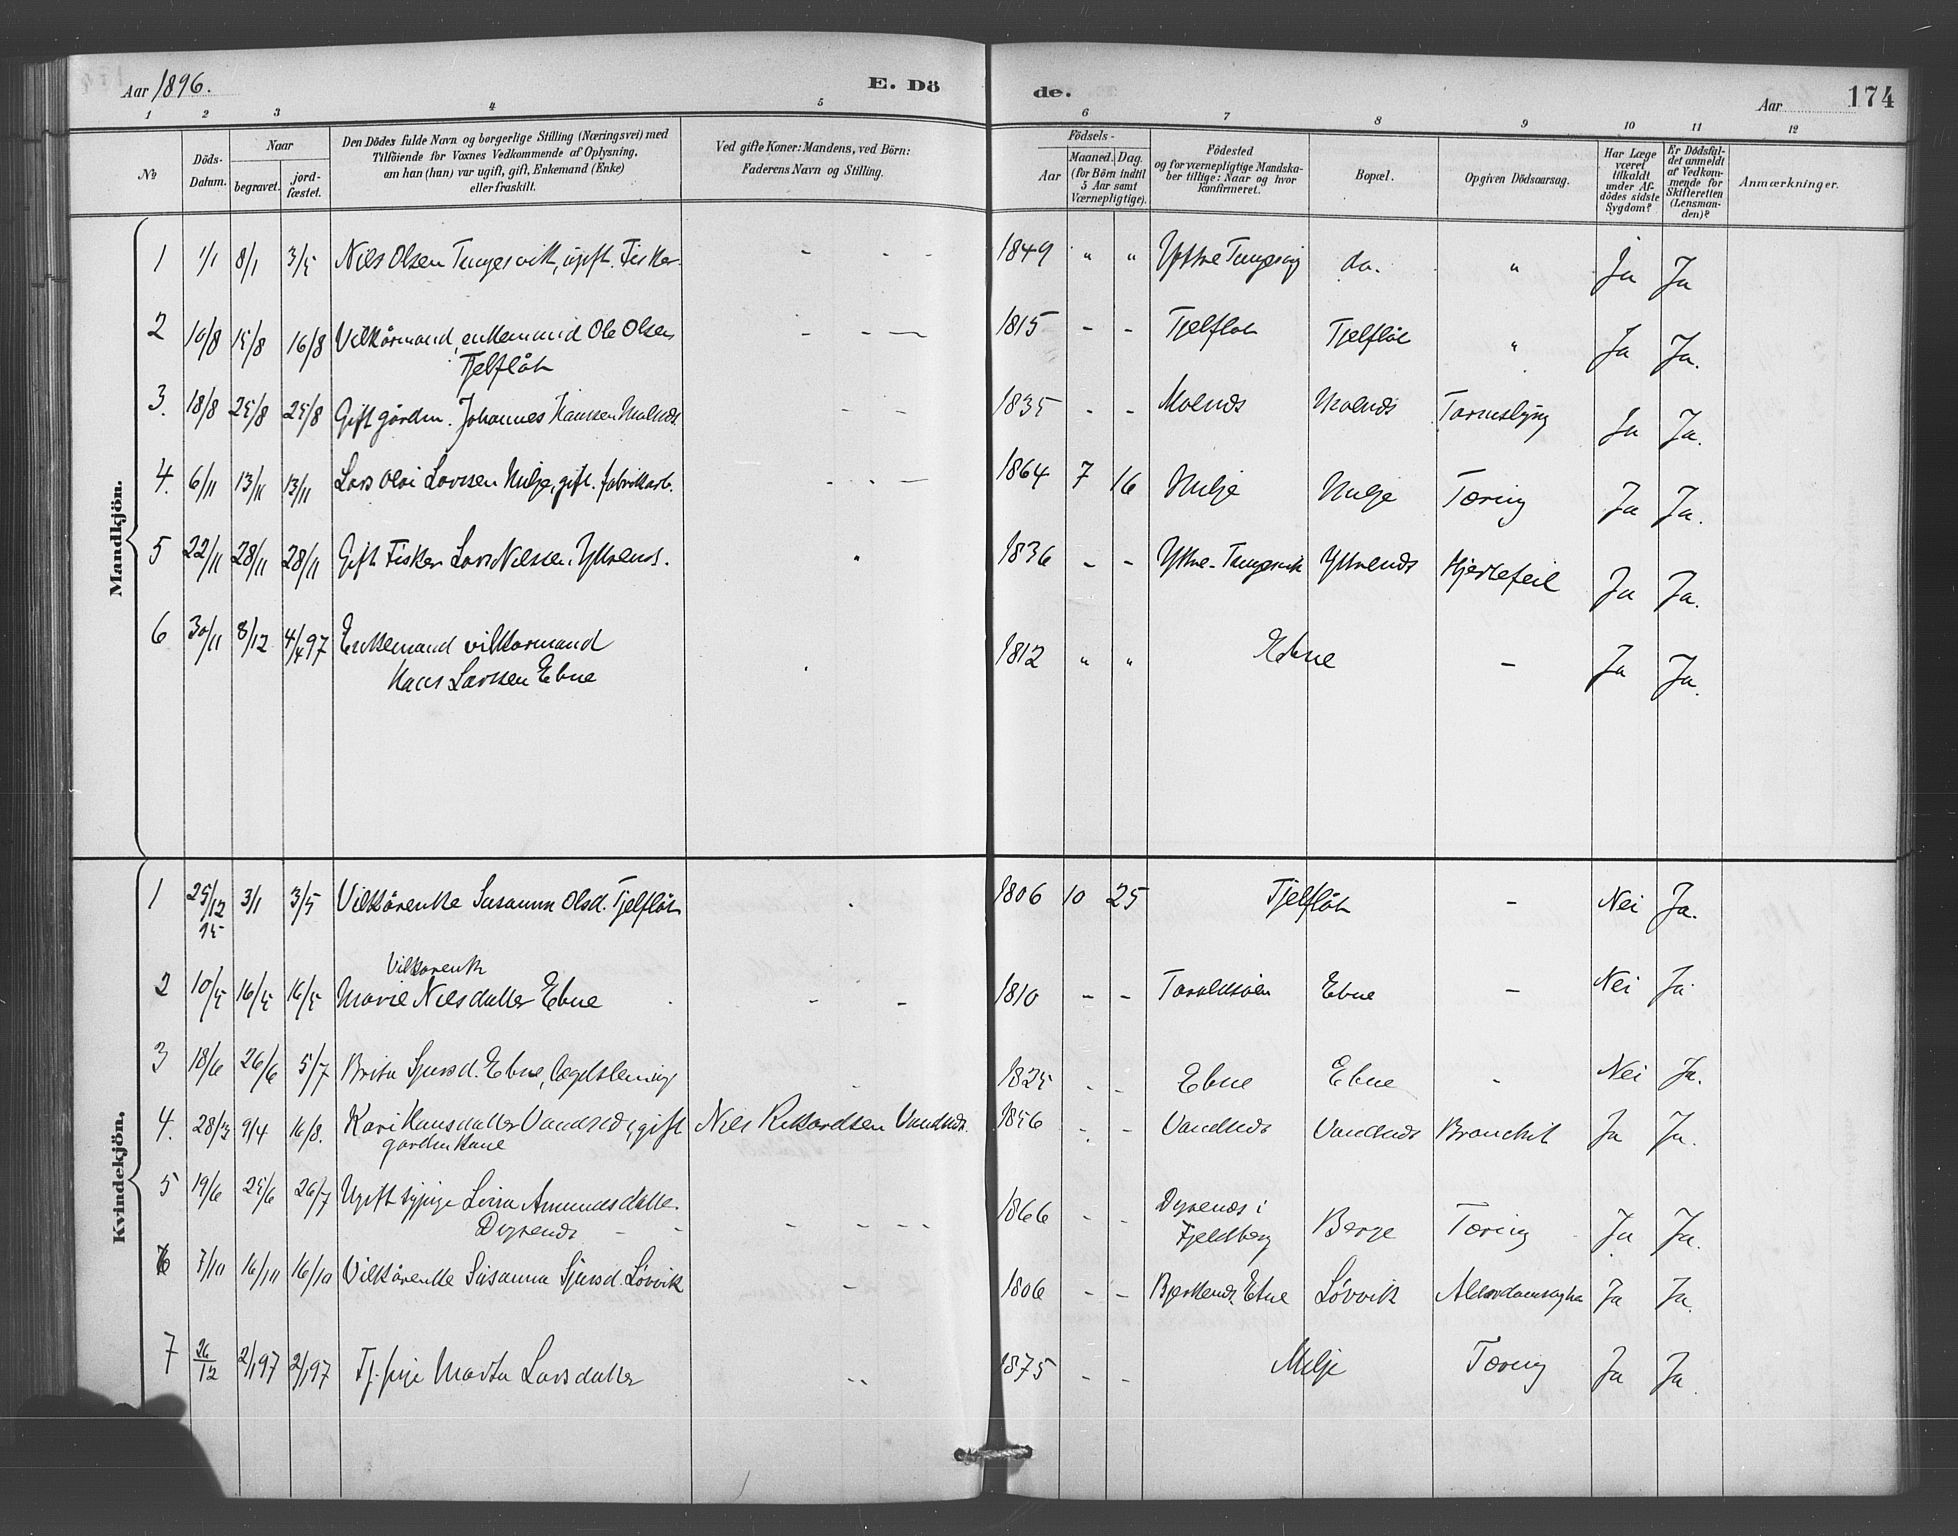 Aar 1896.
E. Dö
de.
Aar
174
1 2 3 4 5 6 7 8 9 10 11 12
№
Döds-Datum.
Naar
begravet.
jord-fæstet.
Den Dödes fulde Navn og borgerlige Stilling (Næringsvei) med
Tilföiende for Voxnes Vedkommende af Oplysning,
om han (hun) var ugift, gift, Enkemand (Enke)
eller fraskilt.
Ved gifte Koner: Mandens, ved Börn:
Faderens Navn og Stilling.
Födsels-
Aar
Maaned. Dag.
(for Börn indtil
5 Aar samt
Værnepligtige).
Födested
og for værnepligtige Mandska-
ber tillige: Naar og hvor
konfirmeret.
Bopæl.
Opgiven Dödsaarsag.
Har Læge
været
tilkaldt
under Af-
dödes sidste
Sygdom?
Er Dödsfal-
det anmeldt
af Vedkom-
mende for
Skifteretten
(Lensman-
den)?
Anmærkninger.
Mandkjön.
1 1/1 8/1 3/5 Nils Olsen Tungesvik, ugift. Fisker. - - - 1849 " " Yttre Tungesvig do. " Ja Ja
2 10/8 15/8 16/8 Vilkårmand, enkemand Ole Olsen - - - 1815 - - Tjelflot Tjelflåt " Ja Ja.
Tjelflåt
3. 18/8 25/8 25/8 Gift gårdm. Johannes Hanssen Molnds. - - 1835 - - Molnds Molnds Ja Ja.
4. 6/11 13/11 13/11 Lars Olai Larssen Milje, gift. fabrikarb. - - - 1864 7 16 Milje Milje Tæring Ja Ja.
5 22/11 28/11 28/11 Gift Fisker Lars Nilssen Yttrends. " 1836 - - Yttre-Tungesvik Yttrends Hjertefeil Ja Ja.
6 30/11 8/12 4/4 97 Enkemand vilkormand 1812 " " Ebne - Ja Ja.
Hans Larssen Ebne
Kvindekjön.
1 25/12 95 3/1 3/5 Vilkårenke Susanna Olsd. Tjelflåt 1806 10 25 Tjelflåt - Nei Ja.
Vilkorenk
2 10/5 16/5 16/5 Marie Nilsdatter Ebne - - 1810 - - Ebne - Nei Ja
3 18/6 26/6 5/7 Brita Sjursd. Ebne, 1825 - - Ebne Ebne - Nei Ja.
4. 28/3 9/4 16/8. Kari Hansdatter Vandsnds, gift Nils Rikardsen Vandsnds. 1856 - - Vandsnds Vandsnds Bronchit Ja Ja.
gårdm kone
5 19/6 25/6 26/7 Ugift Amundsdatter. 1866 - - Dyrends i Berge Tæring Ja Ja.
Dyrends - - - - - - Fjeldberg
6 7/10 16/10 16/10 Vilkårenke Susanna Sjursd. Løvvik - 1806 - - Bjerkends, Ebne Løvvik Ja Ja.
7 26/12 2/1 97 2/1 97 Marta Larsdatter 1875 - - Milje Tæring Ja Ja.